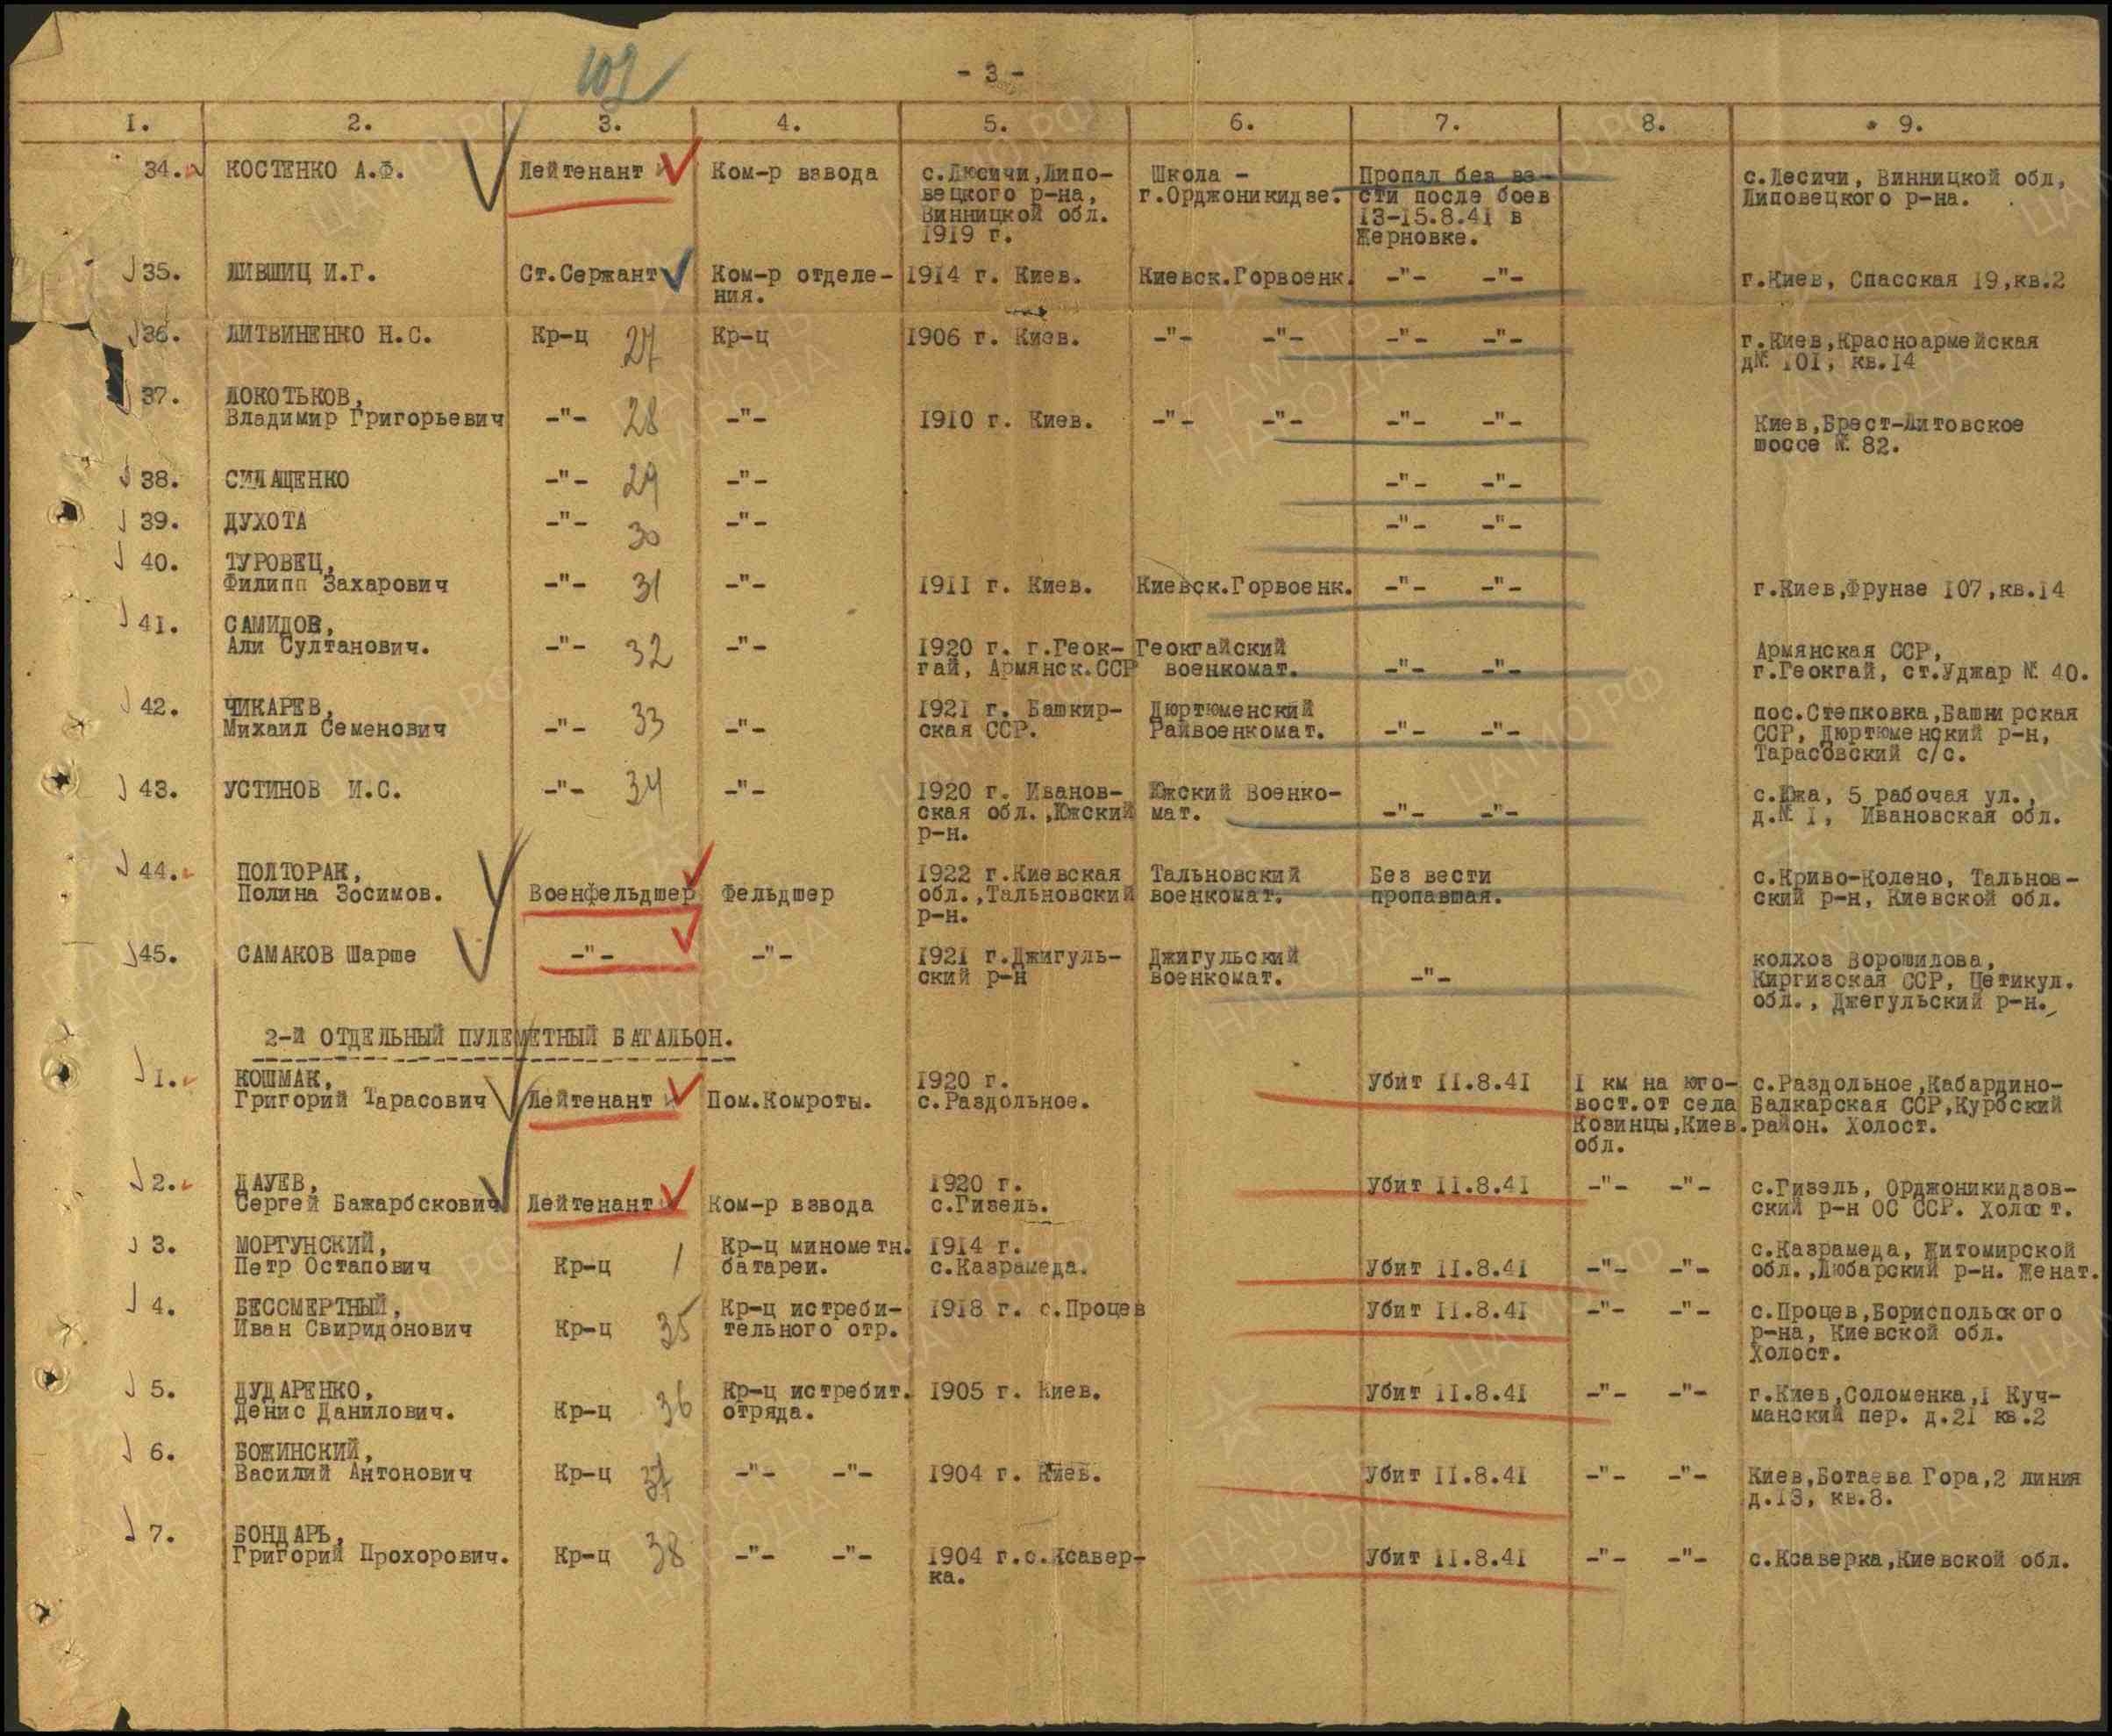 102
- 3 -
1. 2. 3. 4. 5. 6. 7. 8. 9.
34. КОСТЕНКО А.Ф. Лейтенант Ком-р взвода с.Люсичи,Липо- Школа - Пропал без ве- с.Лесичи, Винницкой обл,
вецкого р-на, г.Орджоникидзе. сти после боев Липовецкого р-на.
Винницкой обл. 13-15.8.41 в
1919 г. Жерновке.
35. ЛИВШИЦ И.Г. Ст.Сержант Ком-р отделе- 1914 г. Киев. Киевск.Горвоенк. -"- -"- г.Киев, Спасская 19,кв.2
ния.
36. ЛИТВИНЕНКО Н.С. Кр-ц 27 Кр-ц 1906 г. Киев. -"- -"- -"- -"- г.Киев,Красноармейская
д№ 101, кв.14
37. ЛОКОТЬКОВ,
Владимир Григорьевич -"- 28 -"- 1910 г. Киев. -"- -"- -"- -"- Киев,Брест-Литовское
шоссе № 82.
38. СИЛАЩЕНКО -"- 29 -"- -"- -"-
39. ДУХОТА -"- 30 -"- -"- -"-
40. ТУРОВЕЦ,
Филипп Захарович -"- 31 -"- 1911 г. Киев. Киевск.Горвоенк. -"- -"- г.Киев,Фрунзе 107,кв.14
41. САМИДОВ,
Али Султанович. -"- 32 -"- 1920 г. г.Геок- Геокгайский Армянская ССР,
гай, Армянск.ССР военкомат. -"- -"- г.Геокгай, ст.Уджар № 40.
42. ЧИКАРЕВ, 1921 г. Башкир- Дюртюменский пос.Степковка,Башкирская
Михаил Семенович -"- 33 -"- ская ССР. Райвоенкомат. -"- -"- ССР, Дюртюменский р-н,
Тарасовский с/с.
43. УСТИНОВ И.С. -"- 34 -"- 1920 г. Иванов- Южский Военко- с.Южа, 5 рабочая ул.,
ская обл.,Южский мат. -"- -"- д.№ 1, Ивановская обл.
р-н.
44. ПОЛТОРАК, 1922 г.Киевская Тальновский Без вести с.Криво-Колено, Тальнов-
Полина Зосимов. Военфельдшер Фельдшер обл.,Тальновский военкомат. пропавшая. ский р-н, Киевской обл.
р-н.
45. САМАКОВ Шарше -"- -"- 1921 г.Джигуль- Джигульский колхоз Ворошилова,
ский р-н военкомат. -"- Киргизская ССР, Цетикул.
обл., Джегульский р-н.
2-й ОТДЕЛЬНЫЙ ПУЛЕМЕТНЫЙ БАТАЛЬОН.
1. КОШМАК, 1920 г. Убит 11.8.41 1 км на юго- с.Раздольное,Кабардино-
Григорий Тарасович Лейтенант Пом.Комроты. с.Раздольное. вост.от села Балкарская ССР,Курбский
Ковинцы,Киев. район. Холост.
обл.
2. ДАУЕВ, 1920 г. Убит 11.8.41 -"- -"- с.Гизель, Орджоникидзов-
Сергей Бажарбскович Лейтенант Ком-р взвода с.Гизель. ский р-н ОС ССР. Холост.
3. МОРГУНСКИЙ, Кр-ц минометн. 1914 г. с.Казрамеда, Житомирской
Петр Остапович Кр-ц 1 батареи. с.Казрамеда. Убит 11.8.41 -"- -"- обл.,Любарский р-н. Женат.
4. БЕССМЕРТНЫЙ, Кр-ц истреби- 1918 г. с.Процев Убит 11.8.41 -"- -"- с.Процев,Бориспольского
Иван Свиридонович Кр-ц 35 тельного отр. р-на, Киевской обл.
Холост.
5. ДУДАРЕНКО, Кр-ц истребит. 1905 г. Киев. Убит 11.8.41 -"- -"- г.Киев,Соломенка,1 Куч-
Денис Данилович. Кр-ц 36 отряда. манский пер. д.21 кв.2
6. БОЖИНСКИЙ,
Василий Антонович Кр-ц 37 -"- -"- 1904 г. Киев. Убит 11.8.41 -"- -"- Киев,Ботаева Гора,2 линия
д.13, кв.8.
7. БОНДАРЬ,
Григорий Прохорович. Кр-ц 38 -"- -"- 1904 г.с.Ксавер- Убит 11.8.41 -"- -"- с.Ксаверка,Киевской обл.
ка.